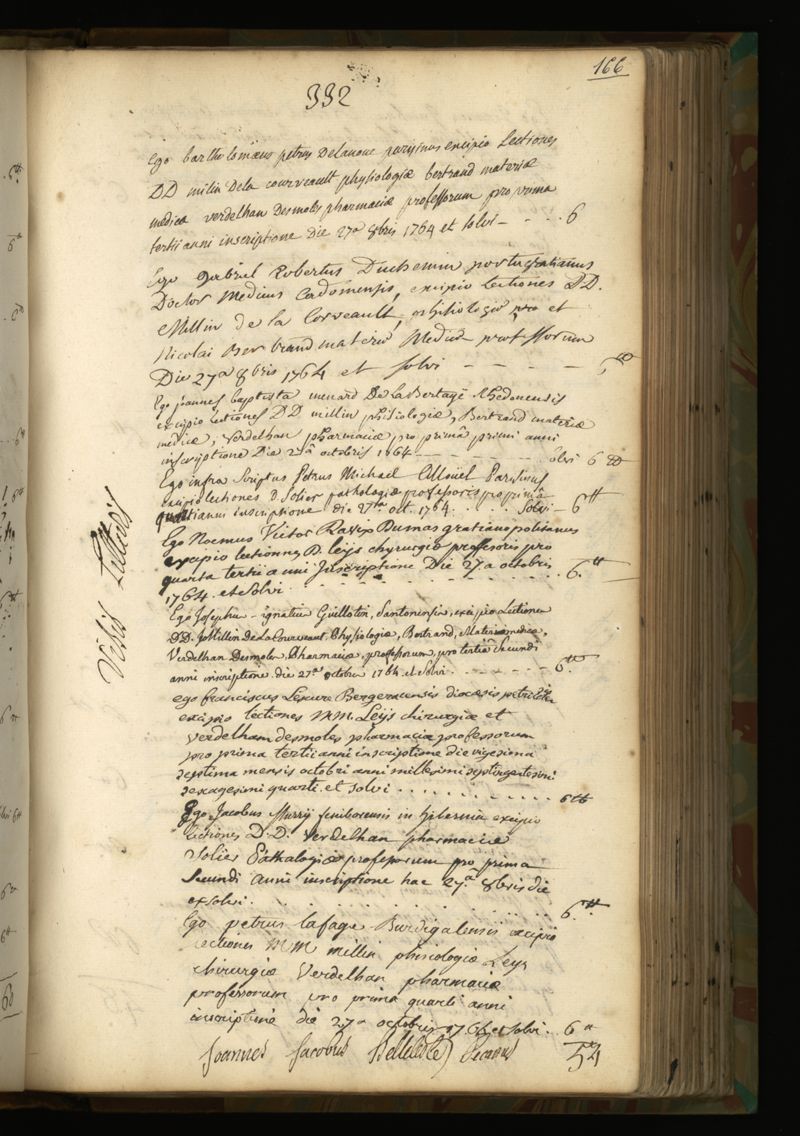 166
332
Ego bartholomæus petrus Delanoue parisinus excipio Lectiones
DD milin Dela courveault physiologiæ bertrand materiæ
medicæ verdelhan Desmoles pharmaciæ professorum pro prima
tertii anni inscriptione die 27a 8bris 1764 et solvi - - - . 6
Ego Gabriel Robertus Duchemin
Doctor Medicus Cadomensis, excipio Lectiones DD.
Millin de la Corveault, phisiologiæ pro et
Nicolai Bertrand materiæ Medicæ professorum
Die 27a 8bris 1764 et solvi - - - -
Ego joannes baptista menard De La Bertagé Rhedonensis
excipio Lectiones DD millin phisiologiæ, Bertrand materiæ
medicæ, verdelhan pharmaciæ pro primâ primi anni
inscriptione Die 27â octobris 1764 - - - - - - solvi 6 tt
Ego infra Scriptus Petrus Michael Parisinus
excipio lectiones D Solier pathologiæ professoris pro primâ
quarti anni inscriptione die 27a oct. 1764. . . . . Solvi - 6 tt
Ego Noemus Victor Dumas gratianopolitanus
excipio lectiones D. leijs chyrurgiæ professoris pro
quarta tertii anni Inscriptione Die 27a octobris
1764. et Solvi . . . . . . . . . . 6. tt
Ego Josephus - ignatius Guillotin, Santonensis, excipio Lectiones
DD. Millin De La Courveault, Physiologiæ, Bertrand, Materiæ medicæ,
Verdelhan Desmoles, Pharmaciæ, professorum, pro tertiâ secundi
anni inscriptione die 27a octobris 1764. et Solvi . - - - - - 6 tt
ego franciscus Lescure Bergeracensis diocesis
excipio lectiones MM. Leijs chirurgiæ et
verdelham desmoles pharmaciæ professorum
pro prima tertii anni inscriptione die vigesima
septima mensis octobri anni millesimi septingentesimi
sexagesimi quarti. et solvi . . . . . . . . . . . 6 tt
Ego Jacobus Murry in hibernia excipio
lectiones D.D. Verdelhan pharmaciæ
Solier Pathalogiæ professorum pro prima
Secundi anni inscriptione hac 27.a 8bris die
et solvi. . . . . . . . . . . 6. tt
Ego petrus lafage Burdigalensis excipio
Lectiones MM millin phisiologiæ Leys
chirurgiæ Verdelhan pharmaciæ
professorum pro prima quarti anni
inscriptione die 27a octobris 1764 et solvi. 6 tt
Joannes Jacobus Belleteste Decanus 54